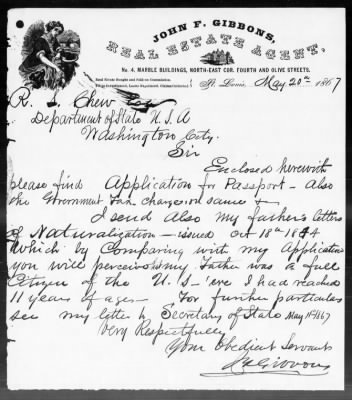 JOHN F. GIBBONS,
REAL ESTATE AGENT,
No. 4, MARBLE BUILDINGS, NORTH-EAST COR. FOURTH AND OLIVE STREETS.
Real Estate Bought and Sold on Commission,
St. Louis, May 20th 1867
R. S. Chew Esq
Department of State U.S.A
Washington City.
Sir
Enclosed herewith
please find Application for Passport - Also
the Government Tax charge on same &
I send Also my father's letters
of Naturalization - issued Oct 18th 1844
Which by Comparing with my Application
you will perceive my Father was a full
Citizen of the U.'S.- 'ere I had reached
11 years of age - For further particulars
see my letter to Secretary of State May 1st 1867
Very Respectfully
Your Obedient Servant
J F Gibbons